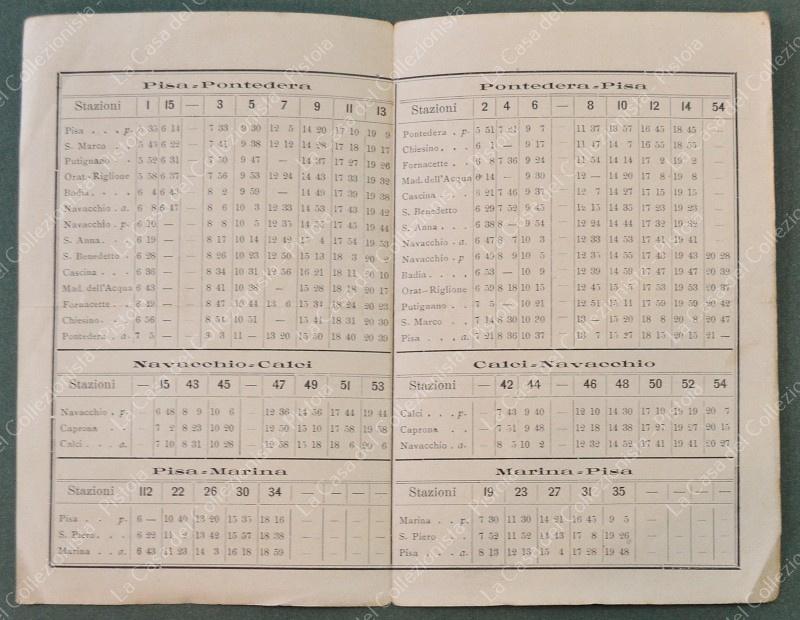 Pisa-Pontedera
Stazioni 1 15 — 3 5 7 9 11 13
Pisa . . . p. 5 35 6 14 — 7 33 9 30 12 5 14 20 17 10 19 9
S. Marco . . 5 43 6 22 — 7 41 9 38 12 12 14 28 17 18 19 17
Putignano . . 5 52 6 31 — 7 50 9 47 — 14 37 17 27 19 26
Orat.-Riglione 5 58 6 37 — 7 56 9 53 12 24 14 43 17 33 19 32
Badia . . . . 6 4 6 43 — 8 2 9 59 — 14 49 17 39 19 38
Navacchio . a. 6 8 6 47 — 8 6 10 3 12 33 14 53 17 43 19 42
Navacchio . p. 6 10 — — 8 8 10 5 12 35 17 45 19 44
S. Anna . . . 6 19 — — 8 17 10 14 12 42 17 54 19 53
S. Benedetto . 6 28 — — 8 26 10 23 12 50 15 13 18 3
Cascina . . . 6 36 — — 8 34 10 31 12 56 18 11
Mad. dell'Acqua 6 43 — — 8 41 10 38 — 15 28 18 18 20 17
Fornacette . . 6 49 — — 8 47 10 44 13 6 15 34 18 24 20 23
Chiesino . . . 6 56 — — 8 54 10 51 — 15 41 18 31 20 30
Pontedera . a 7 5 — — 9 3 11 — 13 20 15 50 18 40 20 39
Navacchio-Calci
Stazioni — 15 43 45 — 47 49 51 53
Navacchio . p. — 6 48 8 9 10 6 — 12 36 14 56 17 44 19 44
Caprona . . — 7 2 8 23 10 20 — 12 50 15 10 17 58 19 58
Calci . . . a. — 7 10 8 31 10 28 — 12 58 15 18 18 6 20 6
Pisa-Marina
Stazioni 112 22 26 30 34 — — — —
Pisa . . . p. 6 — 10 40 13 20 15 35 18 16 — — — —
S. Piero . . . 6 22 11 2 13 42 15 57 18 38 — — — —
Marina . . a. 6 43 11 23 14 3 16 18 18 59 — — — —
Pontedera-Pisa
Stazioni 2 4 6 — 8 10 12 14 54
Pontedera . p 5 51 7 21 9 7 — 11 37 13 57 16 45 18 45
Chiesino . . . 6 1 — 9 17 — 11 47 14 7 16 55 18 55 —
Fornacette . . 6 8 7 36 9 24 — 11 54 14 14 17 2 19 2 —
Mad. dell'Acqua 6 14 — 9 30 — 12 — 14 20 17 8 19 8 —
Cascina . . . 6 21 7 46 9 37 — 12 7 14 27 17 15 19 15 —
S. Benedetto 6 29 7 52 9 45 — 12 15 14 35 17 23 19 23 —
S. Anna . . . 6 38 8 — 9 54 — 12 24 14 44 17 32 19 32 —
Navacchio . a. 6 47 8 7 10 3 — 12 33 14 53 17 41 19 41 —
Navacchio . p 6 49 8 9 10 5 — 12 35 14 55 17 43 19 43 20 28
Badia . . . . 6 53 — 10 9 — 12 39 14 59 17 47 19 47 20 32
Orat-Riglione 6 59 8 18 10 15 — 12 45 15 5 17 53 19 53 20 37
Putignano . . 7 5 — 10 21 — 12 51 15 11 17 59 19 59 20 42
S. Marco . . 7 14 8 30 10 20 — 13 — 15 20 18 8 20 8 20 47
Pisa . . . a. 7 21 8 36 10 37 — 13 7 15 27 18 15 20 15 21 —
Calci-Navacchio
Stazioni — 42 44 — 46 48 50 52 54
Calci . . . p. — 7 43 9 40 — 12 10 14 30 17 19 19 19 20 7
Caprona . . — 7 51 9 48 — 12 18 14 38 17 27 19 27 20 15
Navacchio . a. — 8 5 10 2 — 12 32 14 52 17 41 19 41 20 27
Marina-Pisa
Stazioni 19 23 27 31 35 — — — —
Marina . . p. 7 30 11 30 14 21 16 45 9 5 — — — —
S. Piero . . 7 52 11 52 14 43 17 8 19 26 — — — —
Pisa . . . a. 8 13 12 13 15 4 17 28 19 48 — — — —
La Casa del Collezionista - Pistoia